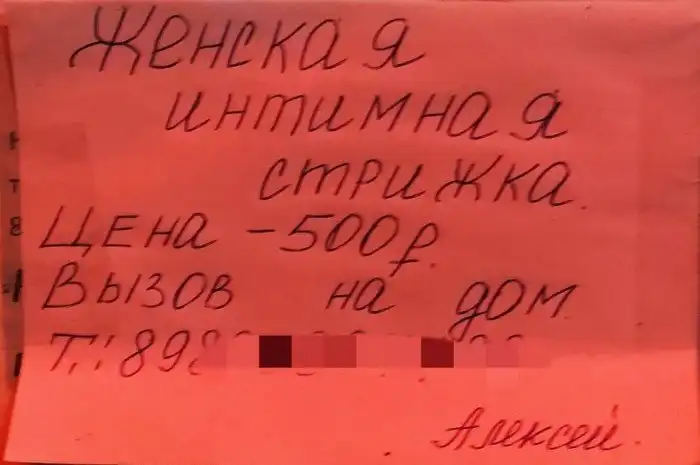 Женская
интимная
стрижка.
Цена - 500р.
Вызов на дом.
Т.: 898
Алексей.